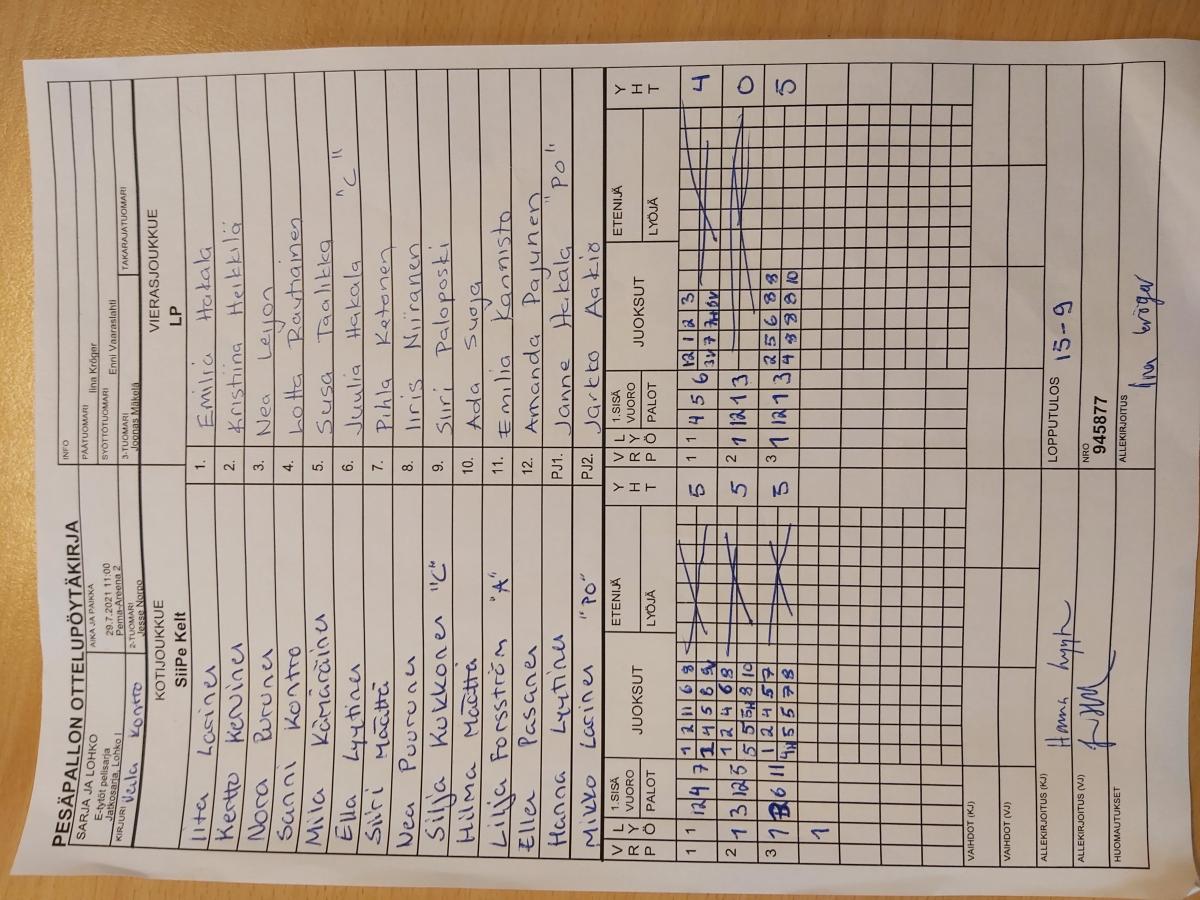 PESÄPALLON OTTELUPÖYTÄKIRJA
SARJA JA LOHKO
E-tytöt pelisarja
Jatkosarja, Lohko I
AIKA JA PAIKKA
29.7.2021 11:00
Pema-Areena 2
INFO
PÄÄTUOMARI Iina Kröger
SYÖTTÖTUOMARI Enni Vaaraslahti
KIRJURI Veila Kontto
2-TUOMARI
Jesse Norpo
3-TUOMARI
Joonas Mäkelä
TAKARAJATUOMARI
KOTIJOUKKUE
SiiPe Kelt
VIERASJOUKKUE
LP
Iita Lasinen 1. Emilia Hakala
Kerttu Kervinen 2. Kristiina Heikkilä
Nora Purunen 3. Nea Leijon
Sanni Kontto 4. Lotta Rautiainen
Mila Kämäräinen 5. Susa Taalikka
Ella Lyytinen 6. Juulia Hakala "C"
Siiri Määttä 7. Pihla Ketonen
Nea Puurunen 8. Iiris Niiranen
Silja Kukkonen "C" 9. Siiri Paloposki
Hilma Määttä 10. Ada Suoja
Lilja Forsström "A" 11. Emilia Kannisto
Ellen Pasanen 12. Amanda Pajunen
Hanna Lyytinen PJ1. Janne Hakala "PO"
Mikko Lasinen "PO" PJ2. Jarkko Aakio
VRP LYÖ 1.SISÄ VUORO PALOT JUOKSUT ETENIJÄ LYÖJÄ YHT VRP LYÖ 1.SISÄ VUORO PALOT JUOKSUT ETENIJÄ LYÖJÄ YHT
1 1 12 4 7 1 2 11 6 8 5 1 1 4 5 6 12 1 2 3 4
2 1 3 12 5 1 2 4 6 8 5 2 1 12 1 3 0
5 5 8 10
3 1 6 11 1 2 4 5 7 5 3 1 12 1 3 2 5 6 8 8 5
5 5 7 8 4 8 8 8 10
1
VAIHDOT (KJ)
VAIHDOT (VJ)
ALLEKIRJOITUS (KJ) LOPPUTULOS 15-9
ALLEKIRJOITUS (VJ) NRO
945877
HUOMAUTUKSET ALLEKIRJOITUS Iina Kröger